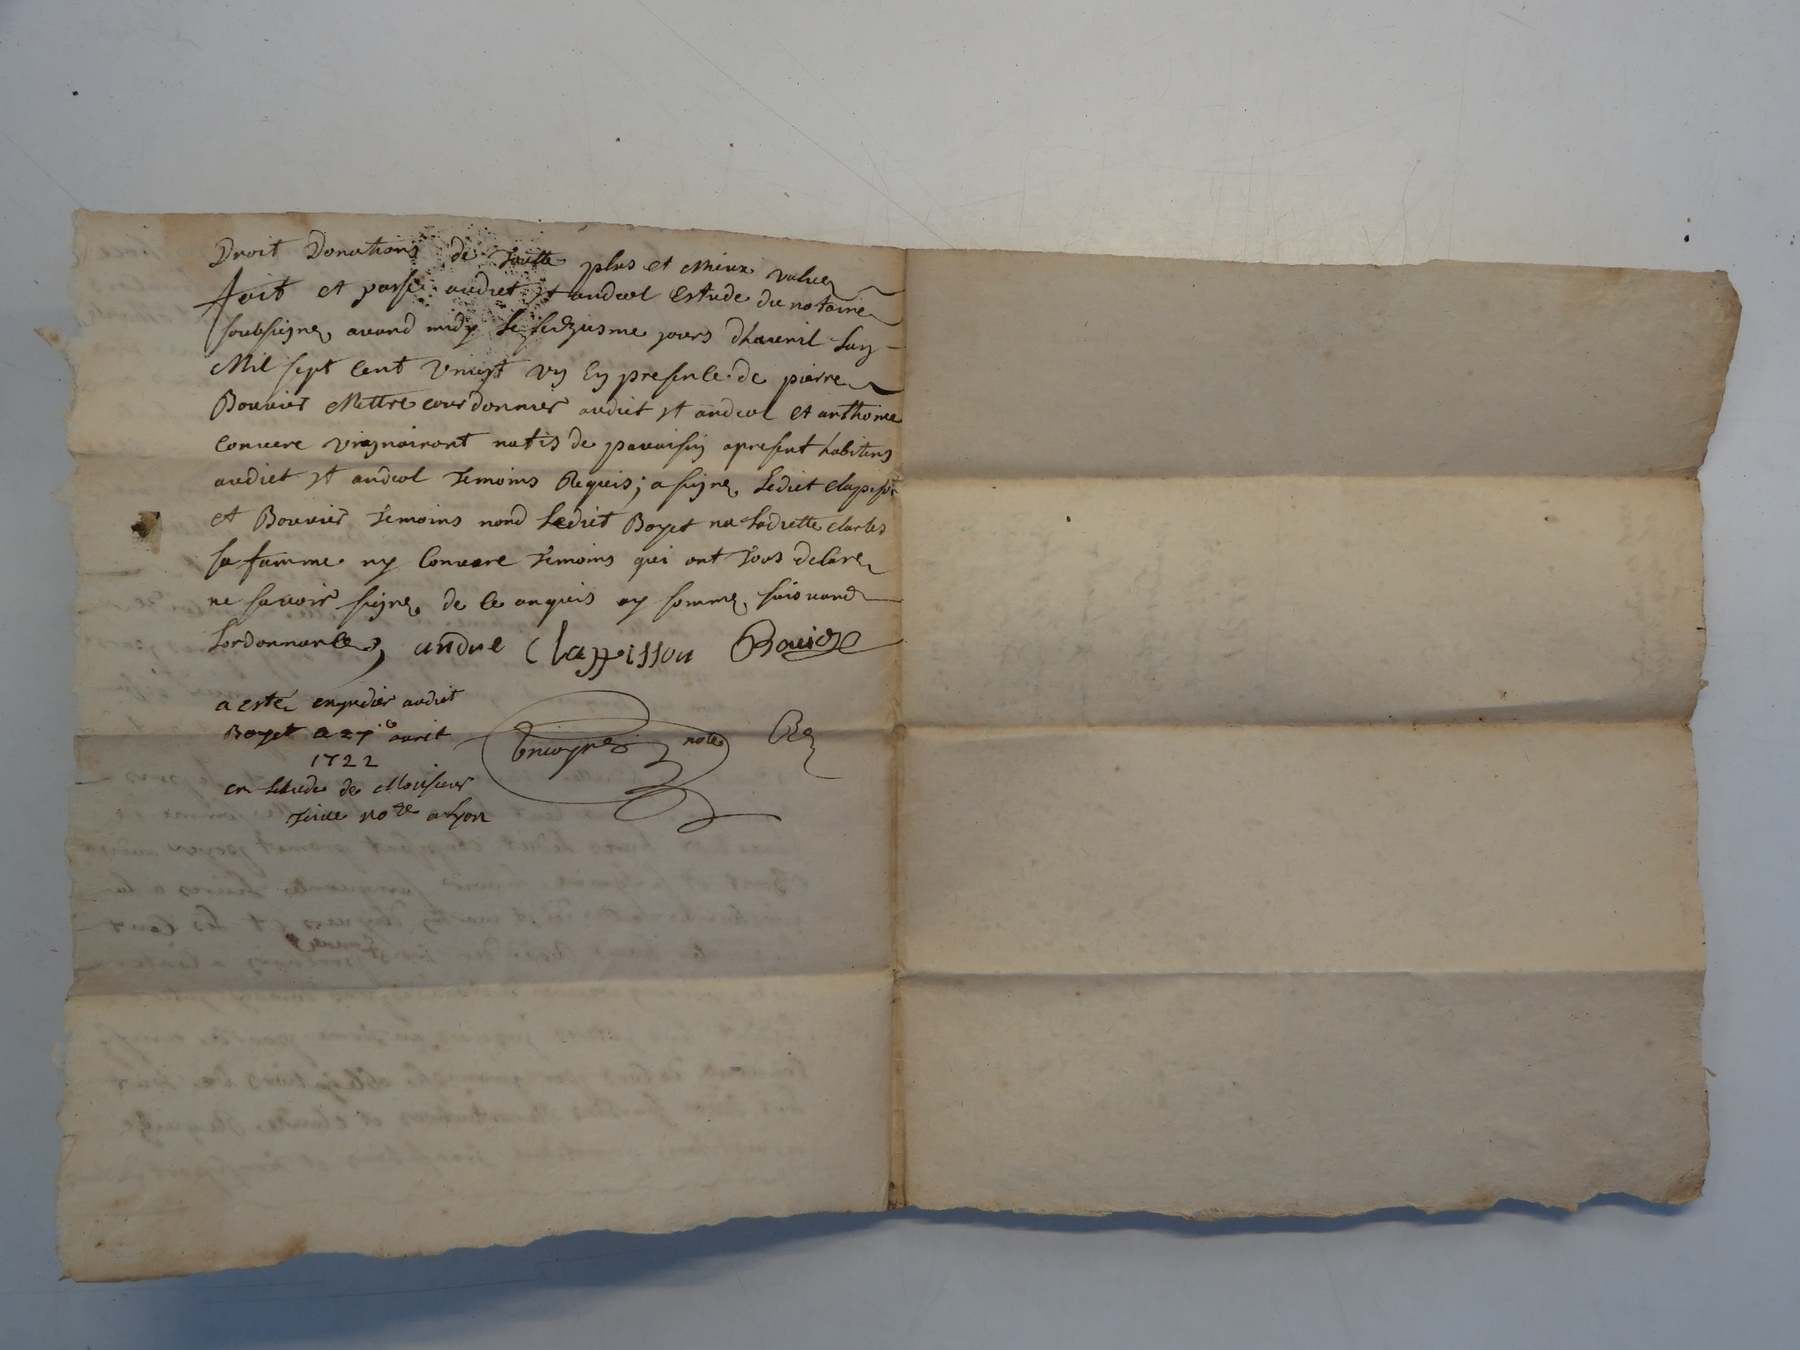 Droit Donations de Toutte plus et mieux values
fait et passé audict st andeol Estude du notaire
soubsigne avand midy le sedziesme jours dhavril Lan
Mil sept cent vningt un En presence de pierre
Bouvier Mettre courdonnier audict st andeol et anthoine
Convere vignairont natis de pavaisin apresent habitens
audict st andeol Temoins Requis; a signe Ledict Clapisson
et Bouvier Temoins nond Ledict Boyet na Ladictte Charles
sa famme ny Convere Temoins qui ont Tous declare
ne savoir signe de ce anquis ay somme suivand
Lordonnance, andre Clappisson Bouvier
a esté expedier audict
Boyet Le 27e avril
1722
en Letude de Monsieur
notre a Lyon
notre